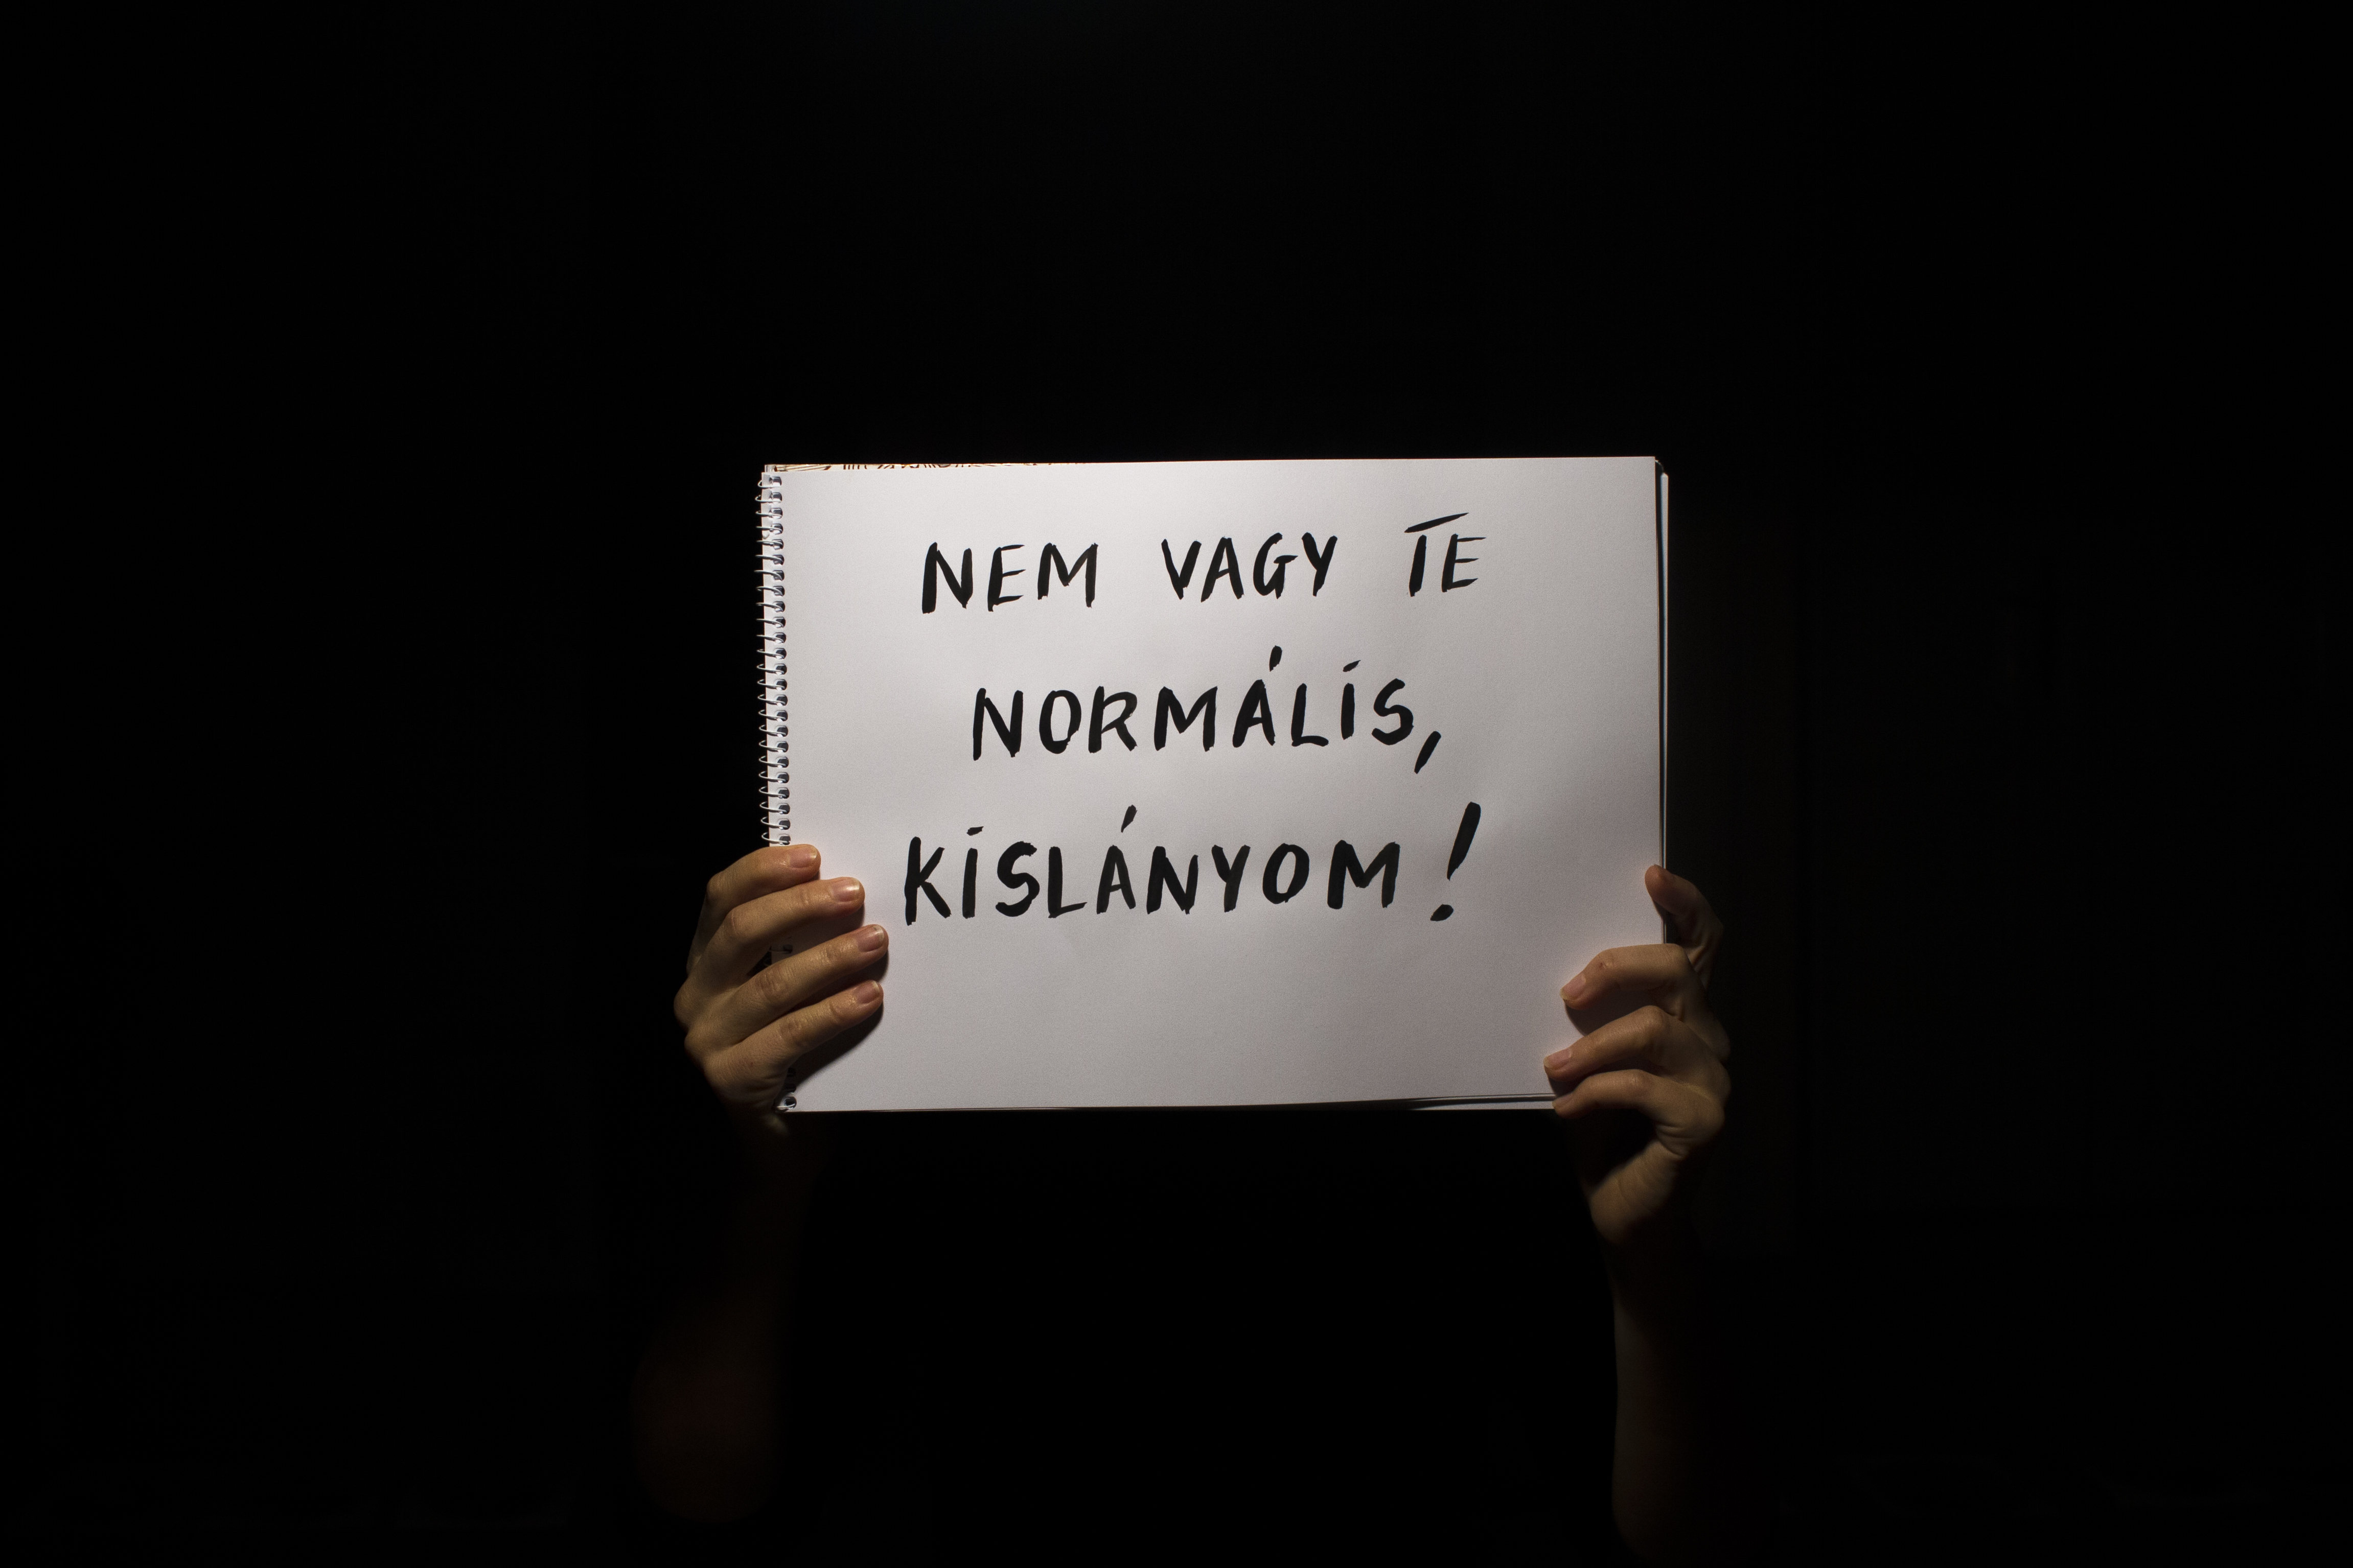 NEM VAGY TE
NORMÁLIS,
KISLÁNYOM!